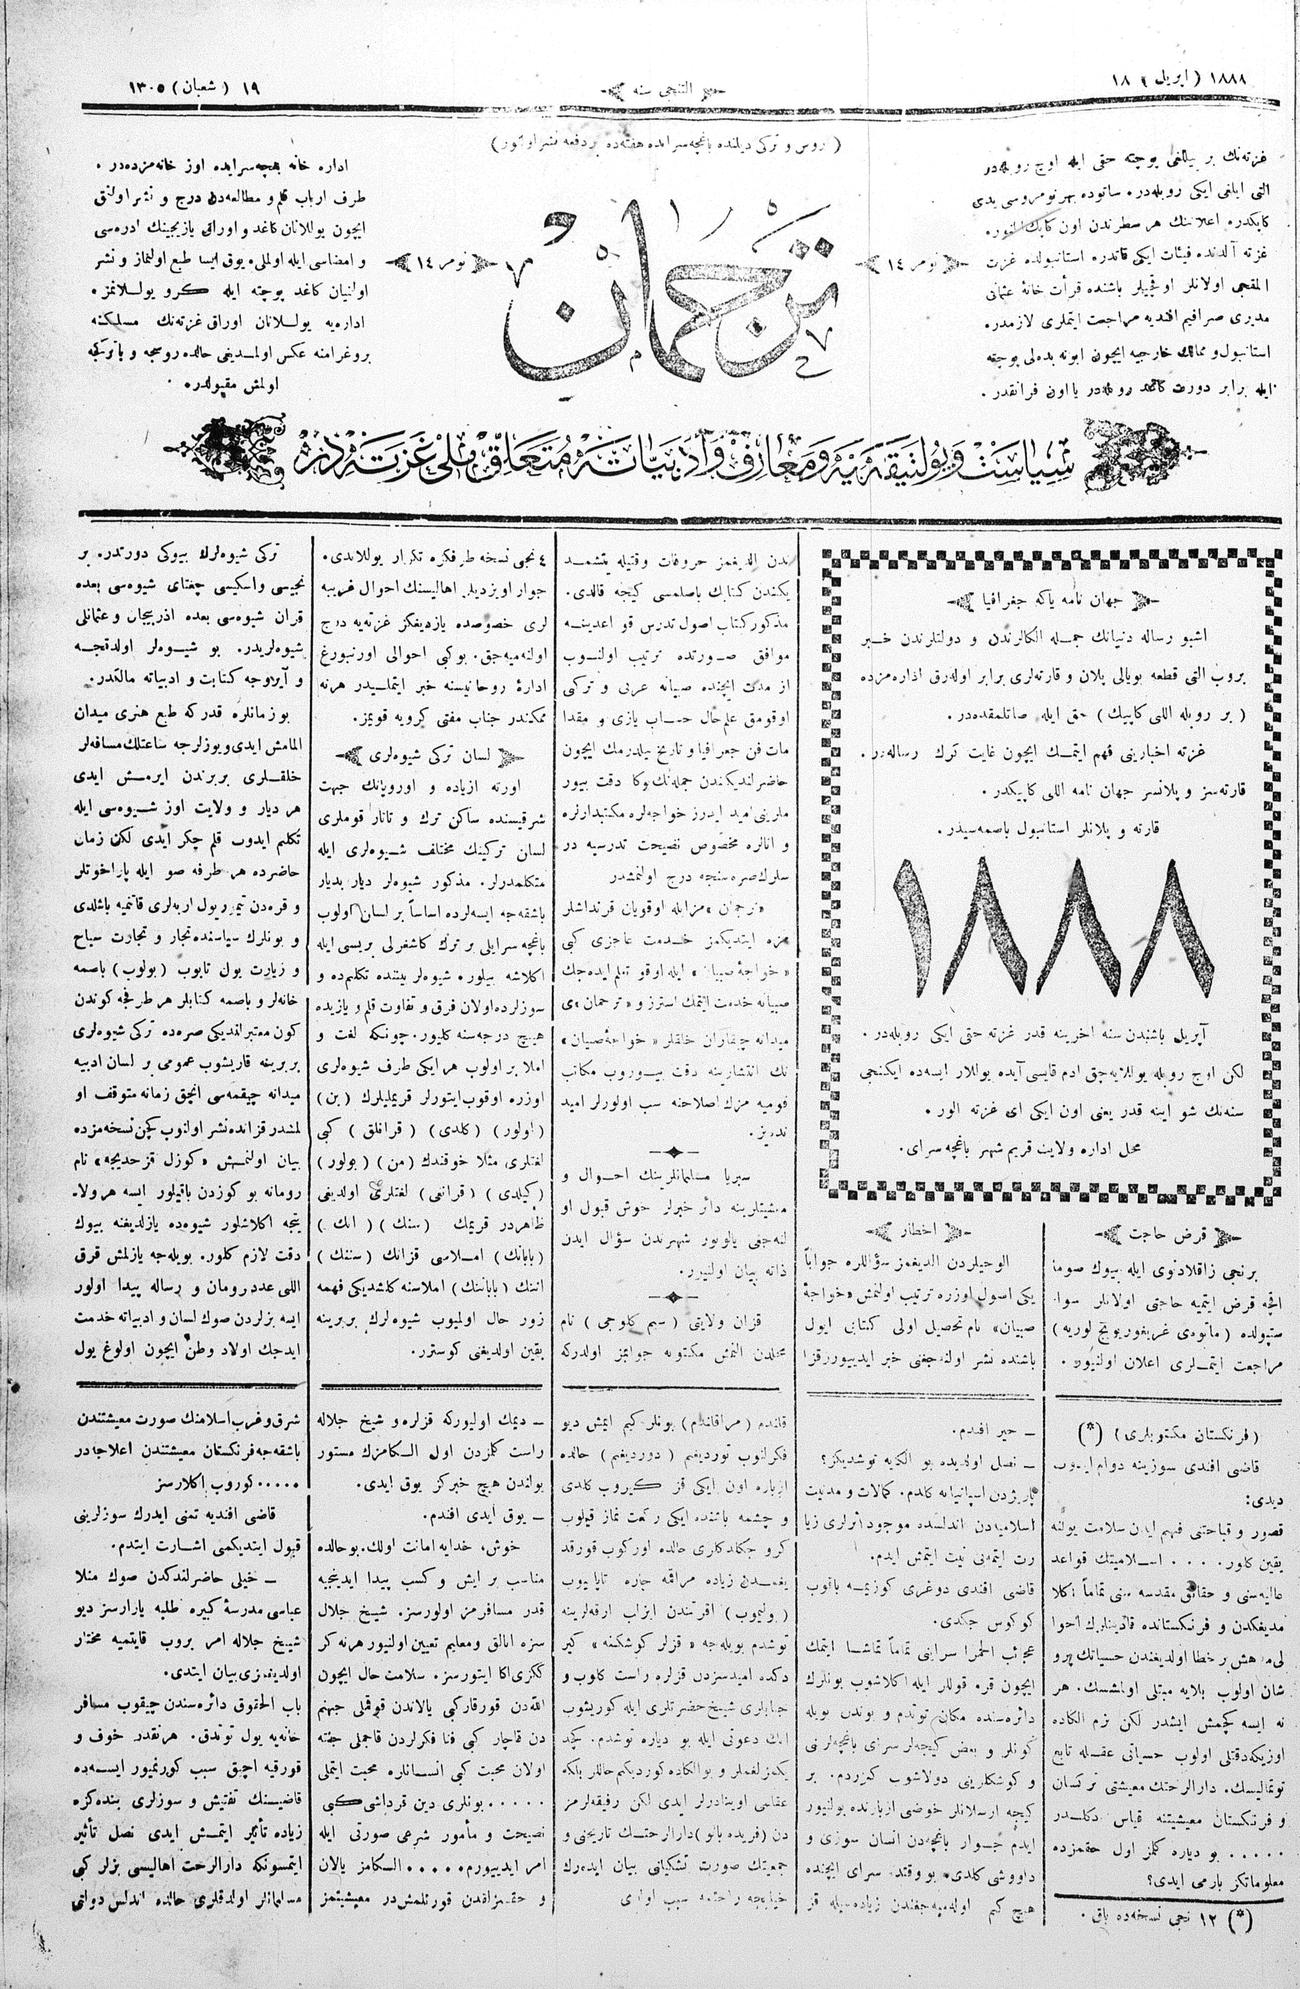 ١٨٨٨ ( اپریل ) ١٨
التنجی سنه
١٩ ( شعبان ) ١٣٠٥
( روس و ترکی دیلنده باغچه‌سرایده هفته‌ده بر دفعه نشر اولنور )
غزته‌نك بر ییللغی پوچته حقی ایله اوچ روبله‌در
التی ایلغی ایکی روبله‌در. ساتوده بهر نومروسی یدی
کاپکدر. اعلاننك هر سطرندن اون کاپك النور.
غزته آلدنده فیئات ایکی قاتدر. استانبولده غزت
المقجی اولانلر اوقجیلر باشنده قرأت خانهٔ عثمانی
مدیری صرافیم افندیه مراجعت ایتملری لازمدر.
استانبول و ممالك خارجیه ایچون ابونه بدلی پوچته
ایله برابر دورت روبله‌در یا اون فرانقدر.
نومر ١٤
ترجمان
نومر ١٤
اداره خانه بهچه‌سرایده اوز خانه‌مزده‌در.
طرف ارباب قلم و مطالعه‌دن درج و نشر اولنق
ایچون یوللانان کاغد و اوراق یازیجینك ادره‌سی
و امضاسی ایله اولملی. یوق ایسا طبع اولنماز و نشر
اولنیان کاغد پوچته ایله کرو یوللانمز.
اداره‌یه یوللانان اوراق غزته‌نك مسلکنه
پروغرامنه عکس اولمدیغی حالده روسجه و یا ترکجه
اولمش مقبولدر.
سیاست و پولتیقه‌یه و معارف و ادبیاته متعلق ملی غزته‌در
جهان نامه یاکه جغرافیا
اشبو رساله دنیانك جمله الکالرندن و دولتلرندن خبر
بروب التی قطعه بویالی پلان و قارته‌لری برابر اوله‌رق اداره‌مزده
( بر روبله اللی کاپیك ) حق ایله صاتلمقده‌در.
غزته اخبارینی فهم ایتمك ایچون غایت کرك رساله‌در.
قارته‌سز و پلانسز جهان نامه اللی کاپیکدر.
قارته و پلانلر استانبول باصمه‌سیدر.
١٨٨٨
آپریل باشندن سنه اخرینه قدر غزته حقی ایکی روبله‌در.
لکن اوچ روبله یوللایه‌جق ادم قایسی آیده یوللار ایسه‌ده ایکنجی
سنه‌نك شو اینه قدر یعنی اون ایکی ای غزته الور.
محل اداره ولایت قریم شهر باغچه سرای.
قرض حاجت
برنجی زاقلادنوی ایله بیوك صوما
اقچه قرض ایتمیه حاجتی اولانلر سوا
ستپولده ( ماتوه‌ی غریغوریویچ لوریه )
مراجعت ایتملری اعلان اولنیور.
اخطار
الوجیلردن الدیغمز سؤاللره جواباً
یکی اسول اوزره ترتیب اولنمش «خواجهٔ
صبیان» نام تحصیل اولی کتابی ایول
باشنده نشر اولنه‌جغی خبر ایدییورز. قزا
ندن الدیغمز حروفات وقتیله یتشمد
یکندن کتابك باصلمسی کیجه قالدی.
مذکور کتاب اصول تدرس قواعدینه
موافق صورتده ترتیب اولنوب
از مدت ایچنده صبیانه عربی و ترکی
اوقومق علم‌حال حساب یازی و مقدا
مات فن جغرافیا و تاریخ بیلدرمك ایچون
حاضرلندیکندن جمله‌نك وکا دقت بیور
ملرینی امید ایدرز خواجه‌لره مکتبدارلره
و انالره مخصوص نصیحت تدرسیه در
سلرك صره‌سنجه درج اولنمشدر
«ترجمان» مزایله اوقویان قرنداشلر
مزه ایتدیکمز خدمت عاجزی کبی
«خواجهٔ صبیان» ایله اوقو تعلم ایده‌جك
صبیانه خدمت ایتمك استرز و «ترجمان»ی
میدانه چیقاران خلقلر «خواجهٔ صبیان»
نك انتشارینه دقت بیوروب مکاتب
قومیه مزك اصلاحنه سبب اولورلر امید
ندریز.
سبریا مسلمانلرینك احوال و
معیشتلرینه دائر خبرلر خوش قبول او
لنه‌جغی یالوبور شهرندن سؤال ایدن
ذاته بیان اولنیر.
قزان ولایتی ( سیم کلوجی ) نام
محلدن النمش مکتوبه جوابمز اولدرکه
٤ نجی نسخه طرفکزه تکرار یوللاندی.
جوار اویزدیلر اهالیسنك احوال غریبه
لری خصوصده یازدیغکز غزته‌یه درج
اولنه‌میه‌جق. بوکبی احوالی اورنبورغ
ادارهٔ روحانیسنه خبر ایتملیدر هرنه
ممکندر جناب مفتی کرویه قویمز.
لسان ترکی شیوه‌لری
اورته ازیاده و اوروپانك جهت
شرقیسنده ساکن ترك و تاتار قوملری
لسان ترکینك مختلف شیوه‌لری ایله
متکلمدرلر. مذکور شیوه‌لر دیار بدیار
باشقه‌جه ایسه‌لرده اساساً بر لسان اولوب
باغچه سرایلی بر ترك کاشغرلی بریسی ایله
اکلاشه بیلور. شیوه‌لر بیننده تکلم‌ده و
سوزلرده اولان فرق و تفاوت قلم و یازیده
هیچ درجه‌سنه کلیور. چونکه لغت و
املا بر اولوب هر ایکی طرف شیوه‌لری
اوزره اوقوب ایتورلر قریملیلرك ( بن )
( اولور ) ( کلدی ) ( قرافلق ) کبی
لغتلری مثلا خوقندك ( من ) ( بولور )
( کیلدی ) ( قرانغی ) لغتلری اولدیغی
ظاهردر قریمك ( سنك ) ( انك )
( بابانك ) املاسی قزانك ( سننك )
اننك ( بابانننك ) املاسنه کلشدیکی فهمه
زور حال اولمیوب شیوه‌لرك بربرینه
یقین اولدیغنی کوسترر.
ترکی شیوه‌لرك بیوکی دورتدر. بر
نجیسی و اسکیسی چغتای شیوه‌سی بعده
قزان شیوه‌سی بعده اذربیجان و عثمانلی
شیوه‌لریدر. بو شیوه‌لر اولدقجه
و آیروجه کتابت و ادبیاته مالکدر.
بو زمانلره قدر که طبع هنری میدان
المامش ایدی و یوزلرجه ساعتلك مسافه‌لر
خلقلری بربرندن ایرمش ایدی
هر دیار و ولایت اوز شیوه‌سی ایله
تکلم ایدوب قلم چکر ایدی لکن زمان
حاضرده هر طرفه صو ایله پاراخوتلر
و قره‌دن تیمور یول اربه‌لری قاتنمیه باشلدی
و بونلرك سیاسنده تجار و تجارت سیاح
و زیارت یول تابوب ( بولوب ) باصمه
خانه‌لر و باصمه کتابلر هر طرفجه کوندن
کون معتبرلندیکی صره‌ده ترکی شیوه‌لری
بربرینه قاریشوب عمومی بر لسان ادبیه
میدانه چیقمه‌سی انجق زمانه متوقف او
لمشدر قزانده نشر اولنوب کچن نسخه‌مزده
بیان اولنمش «کوزل قز حدیجه» نام
رومانه بو کوزدن باقیلور ایسه هر ولا
یتجه اکلاشلور شیوه‌ده یازلدیغنه بیوك
دقت لازم کلور. بویله‌جه یازلمش قرق
اللی عدد رومان و رساله پیدا اولور
ایسه بزلردن صوك لسان و ادبیاته خدمت
ایدجك اولاد وطن ایچون اولوغ یول
( فرنکستان مکتوبلری ) (*)
قاضی افندی سوزینه دوام ایدوب
دیدی:
قصور و قباحتنی فهم ایدن سلامت یولنه
یقین کلور. ... اسلامیتك قواعد
عالیه‌سنی و حقائق مقدسه‌سنی تماماً اکلا
مدیغکدن و فرنکستانده قادینلرك احوا
لی مدهش بر خطا اولدیغندن حسیاتك پرو
شان اولوب بلایه مبتلی اولمشسك. هر
نه ایسه کچمش ایشدر لکن بزم الکاده
اوزیکه دقتلی اولوب حسیاتی عقله تابع
توتمالیسك. دارالراحتك معیشتی ترکستان
و فرنکستان معیشیتنه قیاس دکلدر
..... بو دیاره کلمز اول حقمزده
معلوماتکز بارمی ایدی؟
(*) ١٢ نجی نسخه‌ده باق.
ــ خیر افندم.
ــ نصل اولدیده بو الکایه توشدیکز؟
پاریژدن اسپانیایه کلدم. کمالات و مدنیت
اسلامیه‌دن اندلسده موجود اثرلری زیا
رت ایتمه‌نی نیت ایتمش ایدم.
قاضی افندی دوغری کوزیمه باقوب
کوکوس چکدی.
عجائب الحمرا سراینی تماماً تماشا ایتمك
ایچون قره قوللر ایله اکلاشوب بونلرك
دائره‌سنده مکان توتدم و بوندن بویله
کونلر و بعض کیجه‌لر سرای باغچه‌لرنی
و کوشکلرینی دولاشوب کزردم. بر
کیجه ارسلانلر حوضی ازبارنده یولنیور
ایدم جوار باغچه‌دن انسان سوزی و
داووشی کلدی. بو وقتده سرای ایچنده
هیچ کم اولمیه‌جغندن زیاده‌سیله قز
قاندم ( مراقلندم ) بونلر کیم ایمش دیو
فکرلنوب توردیغم ( دوردیغم ) حالده
ازباره اون ایکی قز کیروب کلدی
و چشمه باشنده ایکی رکعت نماز قیلوب
کرو چکلدکلری حالده اورکوب قورقد
یغمدن زیاده مراقمه چاره تاپایوب
( بولمیوب ) اقرتندن ایزلاب ارقه‌لرینه
توشدم بویله‌جه «قزلر کوشکنه» کیر
دکده امیدسزدن قزلره راست کلوب و
جنابلری شیخ حضرتلری ایله کوریشوب
انك دعوتی ایله بو دیاره توشدم. کچد
یکمز لغملر و بو الکاده کوردیکم حاللر بلکه
عقلمی اوینادرلر ایدی لکن رفیقه‌لرمز
دن ( فریده بانو ) دارالراحتك تاریخنی و
جمعیتك صورت تشکیلنی بیان ایده‌رك
خیلیجه راحتمه سبب اولدی
ــ دیمك اولیورکه قزلره و شیخ جلاله
راست کلمزدن اول الکامزك مستور
یولندن هیچ خبرکز یوق ایدی.
ــ یوق ایدی افندم.
خوش، خدایه امانت اولك. بو حالده
مناسب بر ایش و کسب پیدا ایدینجیه
قدر مسافرمز اولورسز. شیخ جلال
سزه اتالق و معلیم تعیین اولنیور هرنه کر
ککزی اکا ایتورسز. سلامت حال ایچون
الله‌دن قورقارکبی یالاندن قوقملی جهنم
دن قاچار کبی فنا فکرلردن قاچملی جفته
اولان محبت کبی انسانلره محبت ایتملی
..... بونلری دین قرداشی کبی
نصیحت و مأمور شرعی صورتی ایله
امر ایدییورم..... الکامز یالان
و حقسزلقدن قورتلمش‌در معیشیتمز
شرق و غرب اسلامنك صورت معیشتندن
باشقه‌جه فرنکستان معیشتندن اعلاجه‌در
..... کوروب اکلارسز
قاضی افندیه تمنی ایدرك سوزلرینی
قبول ایتدیکمی اشارت ایتدم.
ــ خیلی حاضرلندکدن صوك منلا
عباسی مدرسهٔ کبیره طلبه یازارسز دیو
شیخ جلاله امر بروب قایتمیه مختار
اولدیغمزی بیان ایتدی.
باب الحقوق دائره‌سندن چیقوب مسافر
خانه‌یه یول توتدق. هرنقدر خوف و
قورقیه اچیق سبب کورنمیور ایسه‌ده
قاضیسنك تفتیش و سوزلری بنده‌کزه
زیاده تأثیر ایتمش ایدی نصل تأثیر
ایتمسونکه دارالرحت اهالیسی بزلر کبی
مسلمانلر اولدقلری حالده اندلس دولتی